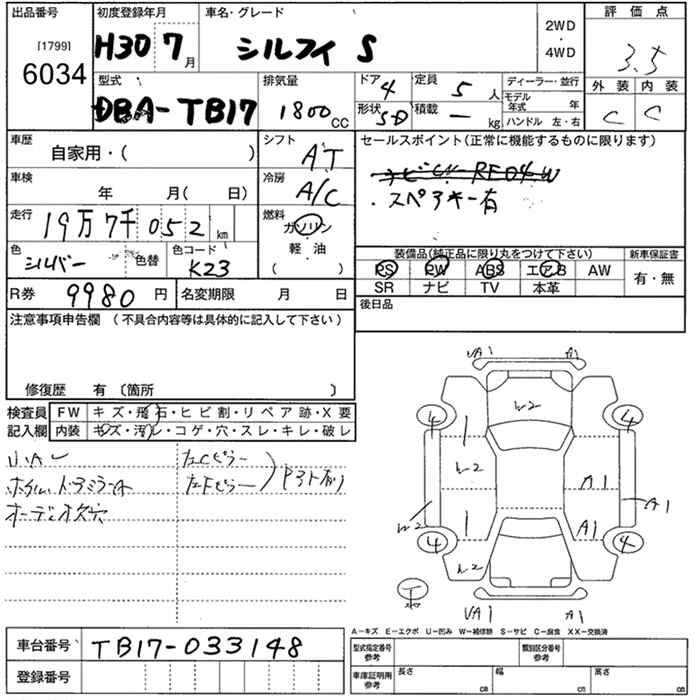 出品番号 初度登録年月 車名・グレード 評価点
[1799]
6034
H30 7月 シルフィ S 2WD・4WD 3.5
型式 排気量 ドア 4 定員 5人 ディーラー・並行 外装 内装
DBA-TB17 1800cc 形状 SD 積載 ー kg モデル年式 年 C C
ハンドル 左・右
車歴 シフト セールスポイント(正常に機能するものに限ります)
自家用・( ) AT
車検 冷房 ・スペアキー有
年 月( 日) A/C
走行 燃料
19万7千052km ガソリン
色 色替 色コード 軽・油
シルバー K23 ( )
装備品(純正品に限り丸をつけて下さい) 新車保証書
PS PW ABS エアB AW 有・無
SR ナビ TV 本革
R券 9980円 名変期限 月 日 後日品
注意事項申告欄 (不具合内容等は具体的に記入して下さい)
修復歴 有 〔箇所 〕
検査員 FW キズ・飛石・ヒビ割・リペア跡・X要
記入欄 内装 キズ・汚レ・コゲ・穴・スレ・キレ・破レ
左Cピラー
オーディオ欠穴
UA1 A1
4 W2 4
1 W2 A1 A1
W2 1 A1
4 W2 4
T
UA1 A1
A-キズ E-エクボ U-凹み W-補修跡 S-サビ C-腐食 XX-交換済
車台番号 TB17-033148 型式指定番号 参考 類別区分番号 参考
登録番号 車庫証明用 参考 長さ cm 幅 cm 高さ cm